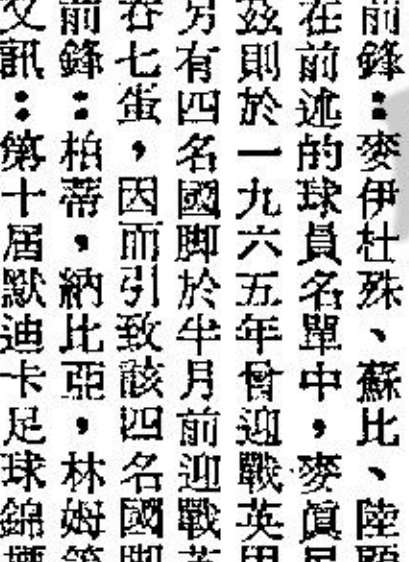 前鋒：麥伊杜殊、蘇比、陸
在前述的球員名單中，麥眞
茲則於一九六五年曾迎戰英
另有四名國脚於半月前迎戰
吞七蛋，因而引致該四名國
前鋒：柏蒂，納比亞，林姆
又訊：第十屆默迪卡足球錦